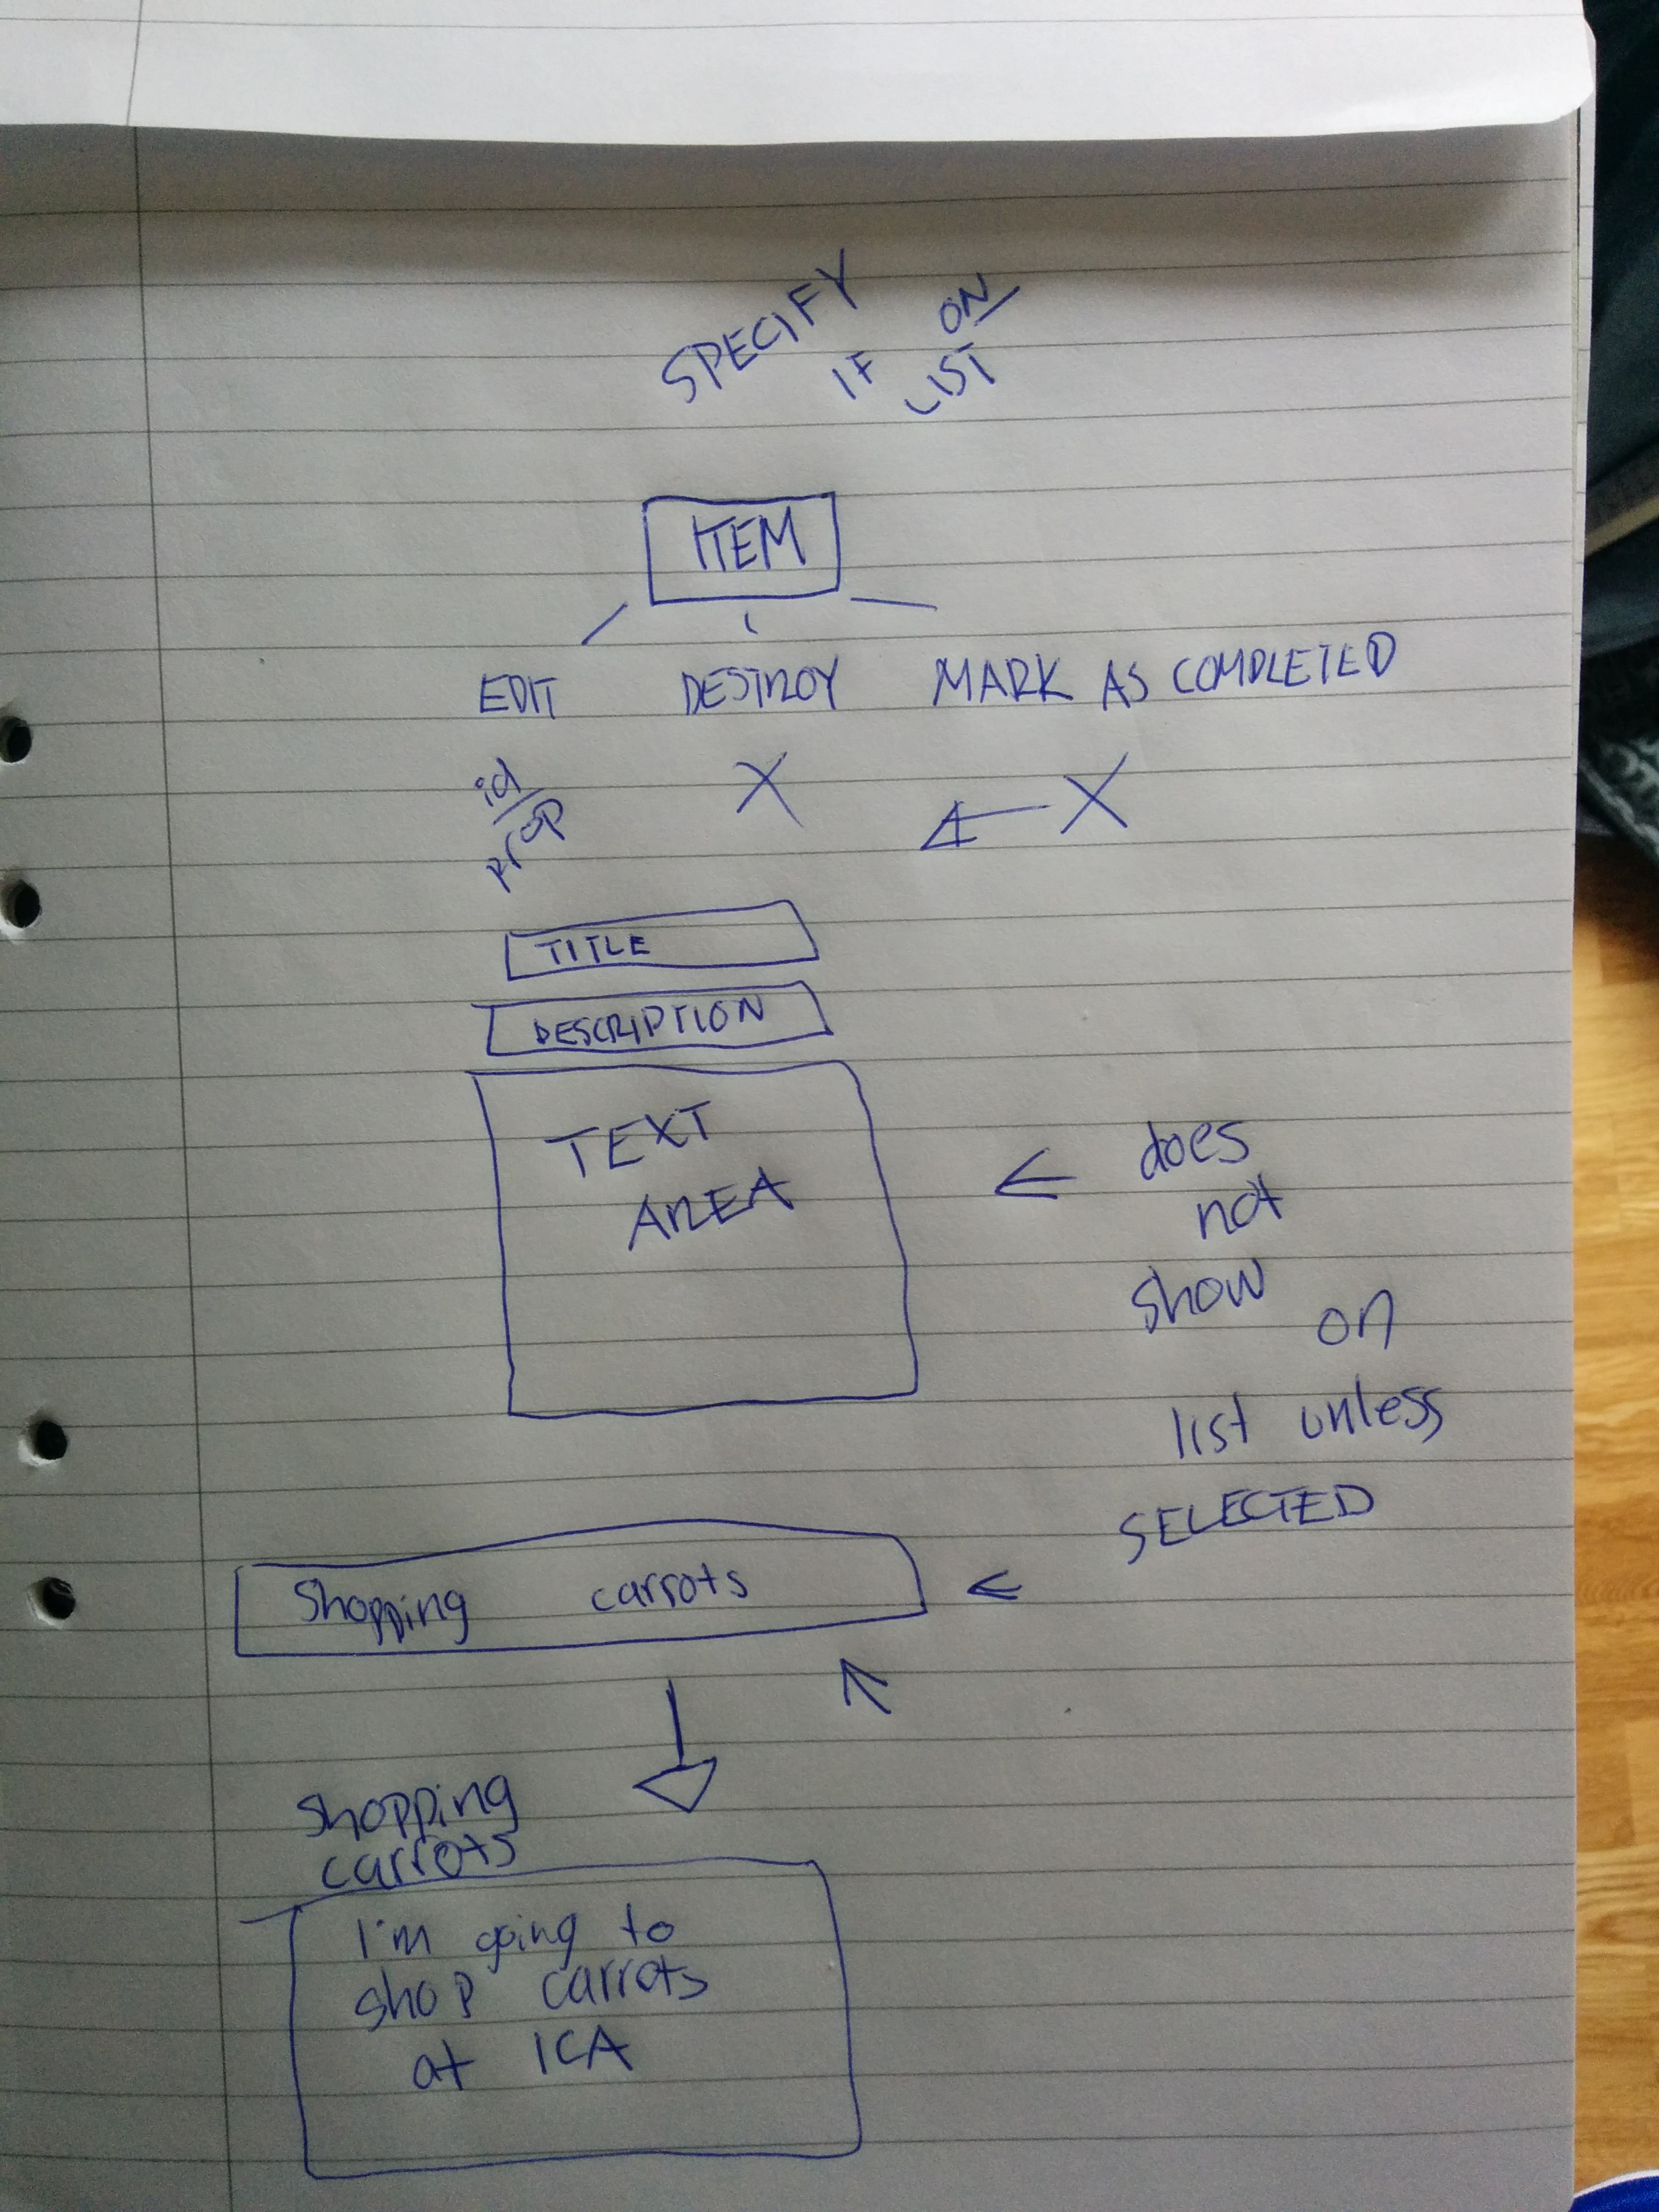 SPECIFY
IF ON
LIST
ITEM
EDIT DESTROY MARK AS COMPLETED
id
prop
X X
TITLE
DESCRIPTION
TEXT
AREA
does
not
show on
list unless
SELECTED
Shopping carrots
Shopping
carrots
I'm going to
shop carrots
at ICA